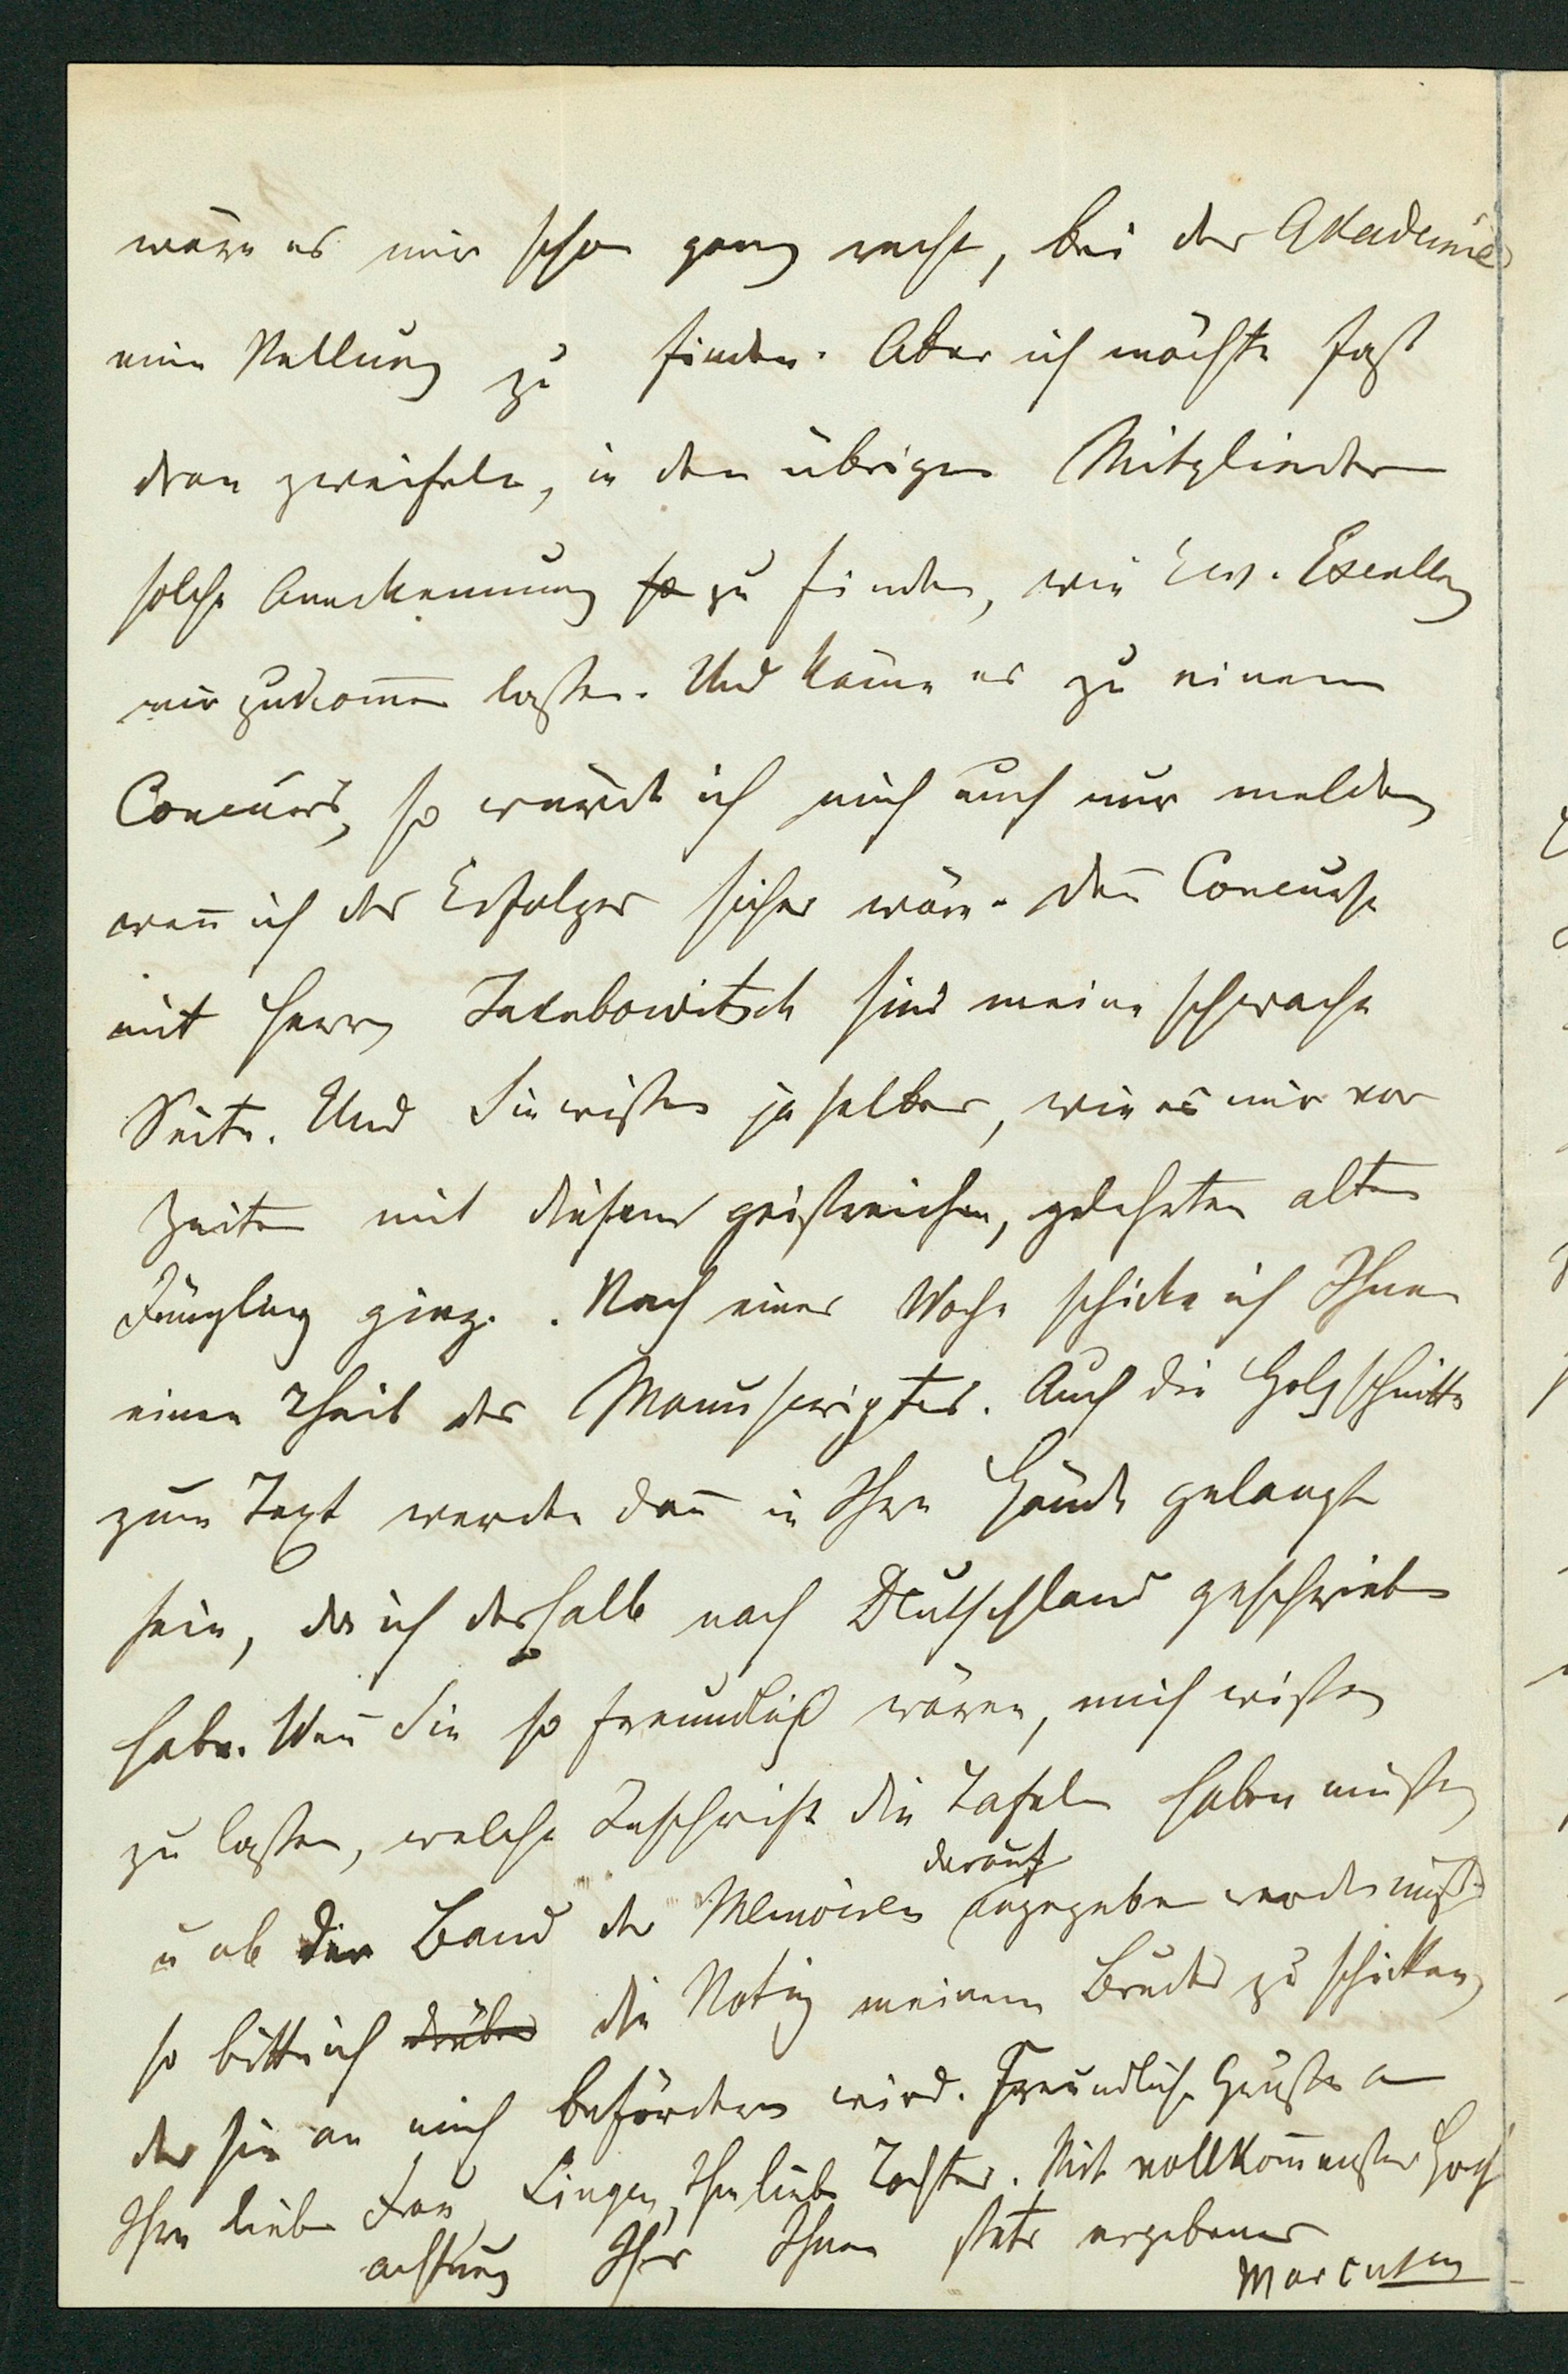 wäre es mir schon ganz recht, bei der Akademie
eine Stellung zu finden. Aber ich möchte fast
dran zweifeln, in den übrigen Mitgliedern
solche Anerkennung so zu finden, wie Ew. Excellenz
mir zukommen lassen. Und käme es zu einem
Concurs, so würde ich mich auch nur melden
wenn ich des Erfolges sicher wäre. Denn Concurse
mit Herrn Jakubowitsch sind meine schwache
Seite. Und Sie wissen ja selber, wie es mir vor
Zeiten mit diesem geistreichen, gelehrten alten
Jüngling ging. Nach einer Woche schicke ich Ihnen
einen Theil des Manuscriptes. Auch die Holzschnitte
zum Text werden dann in Ihre Hände gelangt
sein, da ich deshalb nach Deutschland geschrieben
habe. Wenn Sie so freundlich wären, mich wissen
zu lassen, welche Inschrift die Tafeln haben müssen
u ob der Band der Memoiren darauf angegeben werden muß
so bitte ich drüber die Notiz meinem Bruder zu schicken
der sie an mich befördern wird. Freundliche Grüße an
Ihre liebe Frau, Ihre liebe Tochter. Mit vollkommenster Hoch
achtung Ihr Ihnen stets ergebener
Marcusen